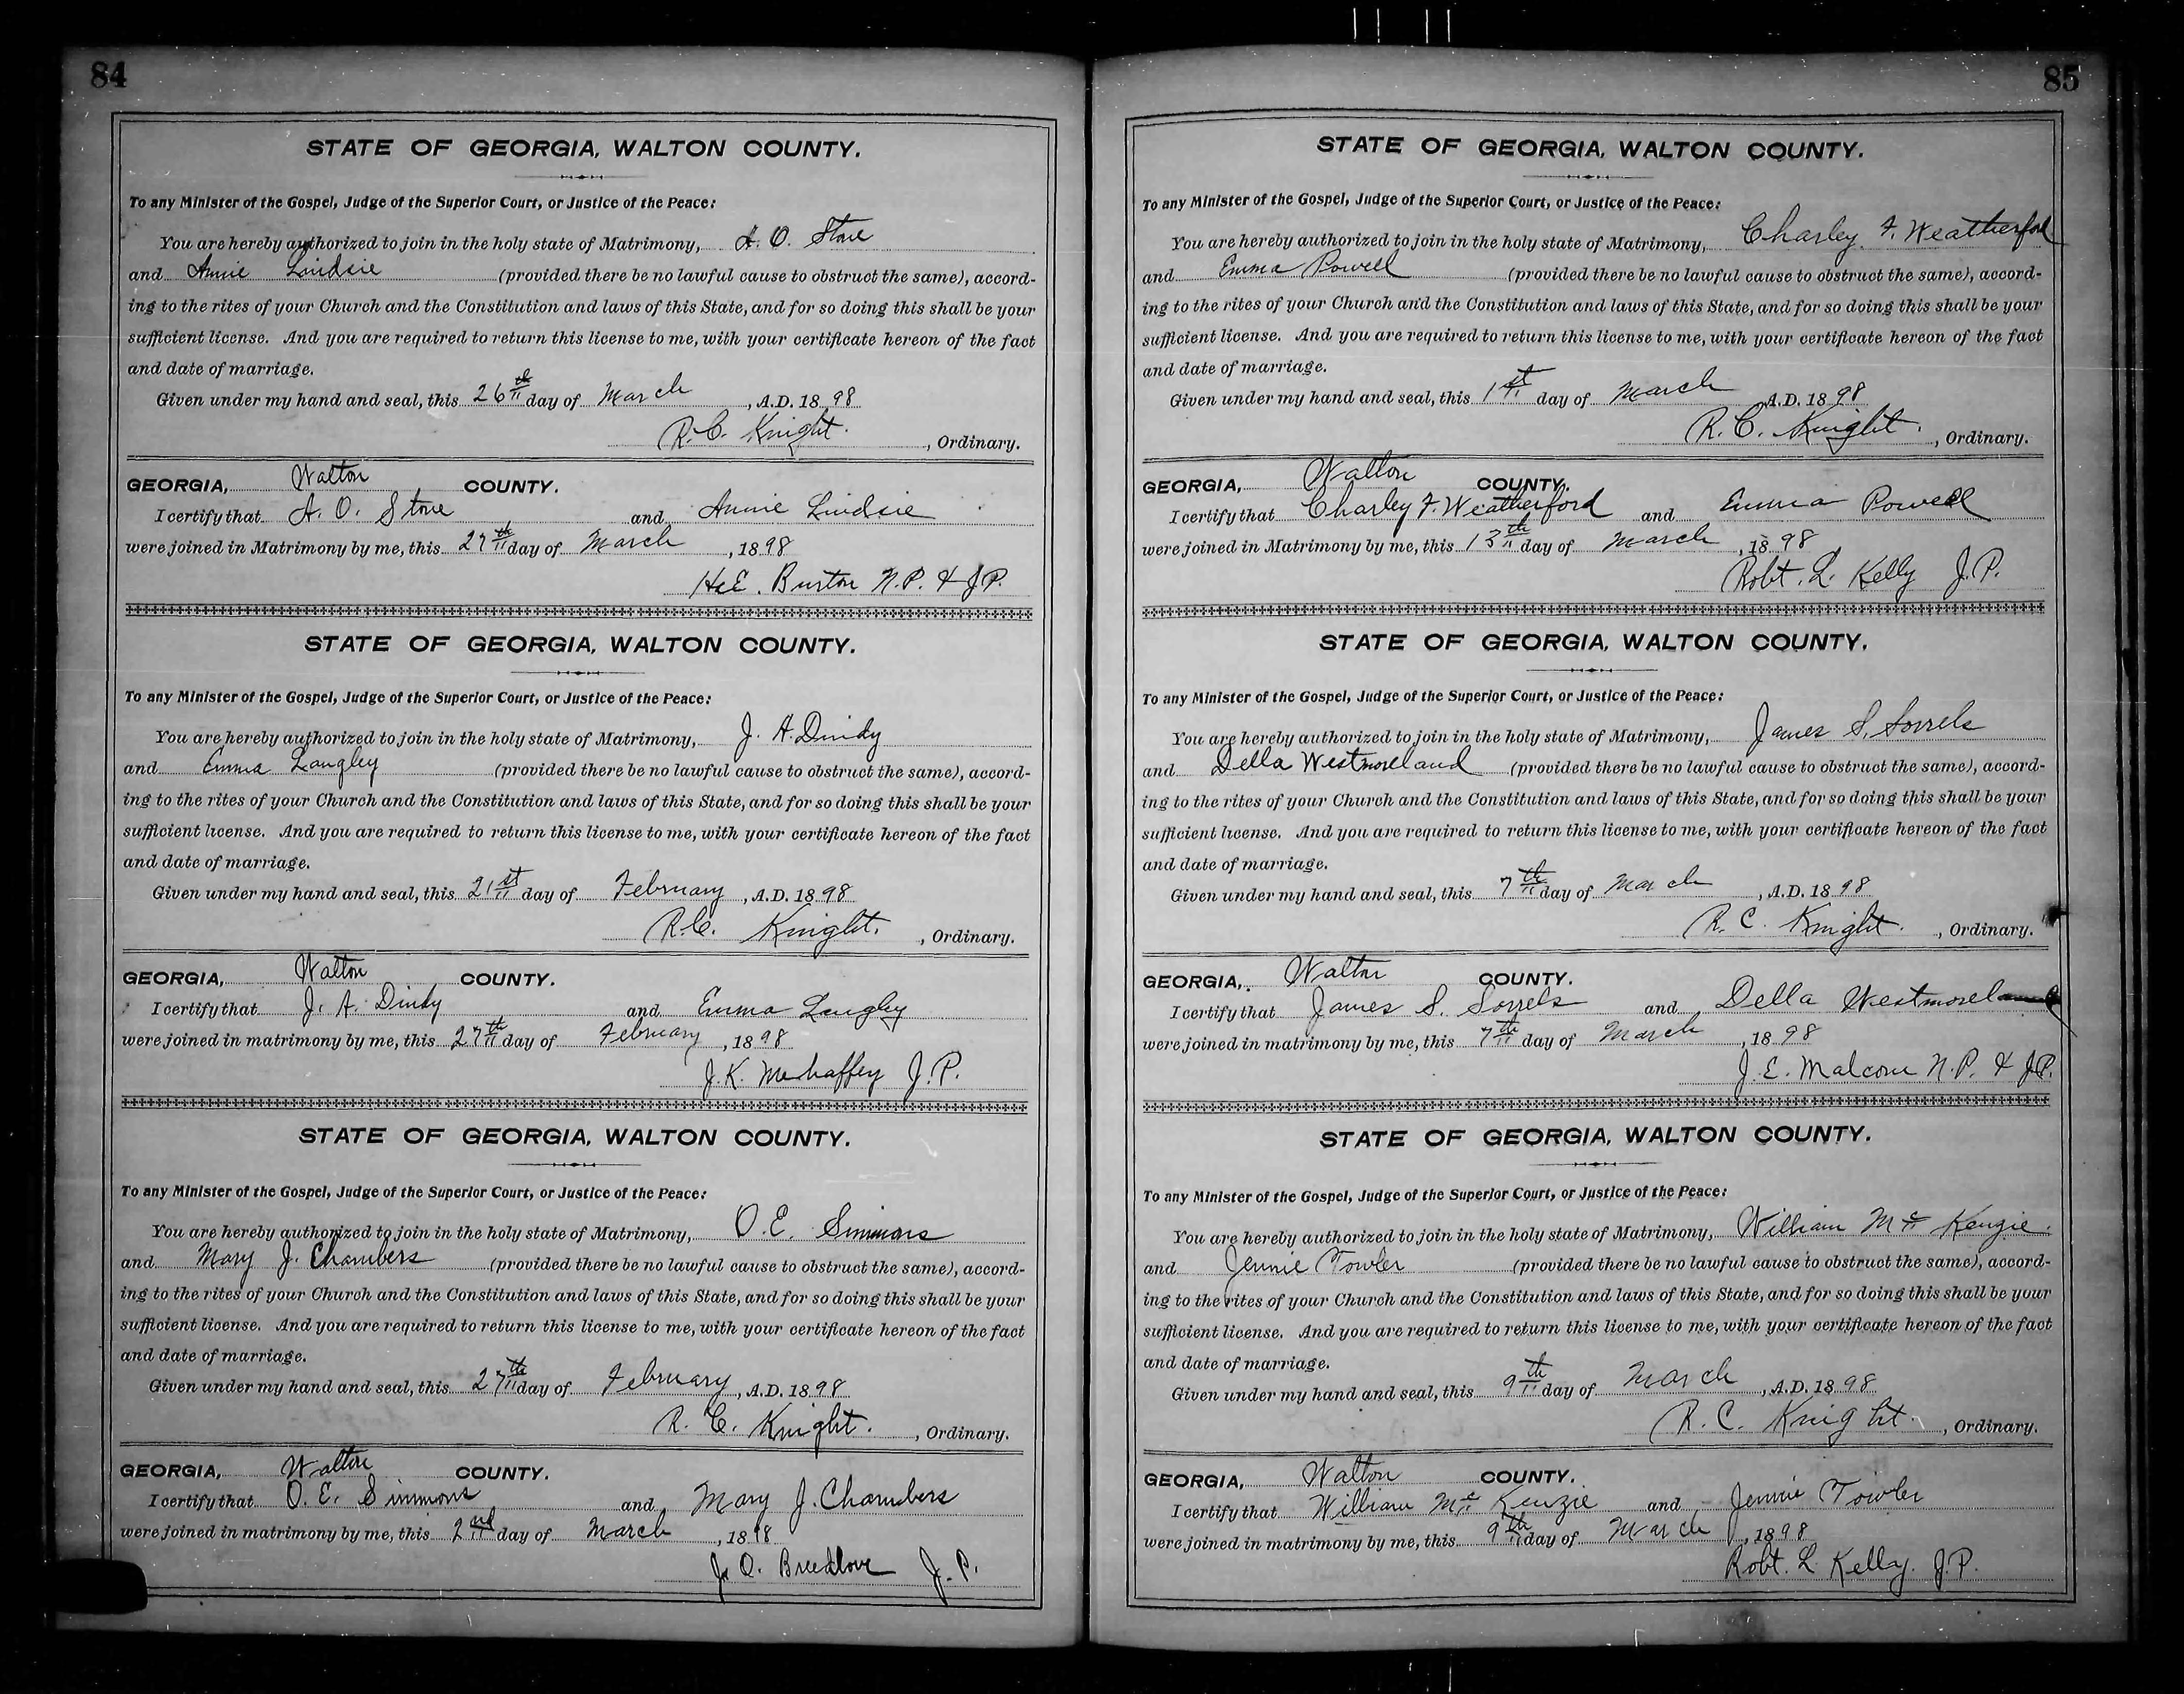 84
STATE OF GEORGIA, WALTON COUNTY.
To any Minister of the Gospel, Judge of the Superior Court, or Justice of the Peace:
You are hereby authorized to join in the holy state of Matrimony, A. O. Stone
and Annie Lindsie (provided there be no lawful cause to obstruct the same), accord-
ing to the rites of your Church and the Constitution and laws of this State, and for so doing this shall be your
sufficient license. And you are required to return this license to me, with your certificate hereon of the fact
and date of marriage.
Given under my hand and seal, this 26th day of March, A.D. 1898
R. C. Knight. , Ordinary.
GEORGIA, Walton COUNTY.
I certify that A. O. Stone and Annie Lindsie
were joined in Matrimony by me, this 27th day of March, 1898
H. E. Burton N.P. & J.P.
STATE OF GEORGIA, WALTON COUNTY.
To any Minister of the Gospel, Judge of the Superior Court, or Justice of the Peace:
You are hereby authorized to join in the holy state of Matrimony, J. A. Dindy
and Emma Langley (provided there be no lawful cause to obstruct the same), accord-
ing to the rites of your Church and the Constitution and laws of this State, and for so doing this shall be your
sufficient license. And you are required to return this license to me, with your certificate hereon of the fact
and date of marriage.
Given under my hand and seal, this 21st day of February, A.D. 1898
R. C. Knight. , Ordinary.
GEORGIA, Walton COUNTY.
I certify that J. A. Dindy and Emma Langley
were joined in matrimony by me, this 27th day of February, 1898
J. K. Mehaffey J.P.
STATE OF GEORGIA, WALTON COUNTY.
To any Minister of the Gospel, Judge of the Superior Court, or Justice of the Peace:
You are hereby authorized to join in the holy state of Matrimony, O. E. Simmons
and Mary J. Chambers (provided there be no lawful cause to obstruct the same), accord-
ing to the rites of your Church and the Constitution and laws of this State, and for so doing this shall be your
sufficient license. And you are required to return this license to me, with your certificate hereon of the fact
and date of marriage.
Given under my hand and seal, this 27th day of February, A.D. 1898
R. C. Knight. , Ordinary.
GEORGIA, Walton COUNTY.
I certify that O. E. Simmons and Mary J. Chambers
were joined in matrimony by me, this 2nd day of March, 1898
J. O. Breedlove J.P.
85
STATE OF GEORGIA, WALTON COUNTY.
To any Minister of the Gospel, Judge of the Superior Court, or Justice of the Peace:
You are hereby authorized to join in the holy state of Matrimony, Charley F. Weatherford
and Emma Powell (provided there be no lawful cause to obstruct the same), accord-
ing to the rites of your Church and the Constitution and laws of this State, and for so doing this shall be your
sufficient license. And you are required to return this license to me, with your certificate hereon of the fact
and date of marriage.
Given under my hand and seal, this 1st day of March A.D. 1898
R. C. Knight. , Ordinary.
GEORGIA, Walton COUNTY.
I certify that Charley F. Weatherford and Emma Powell
were joined in Matrimony by me, this 13th day of March, 1898
Robt. L. Kelly J.P.
STATE OF GEORGIA, WALTON COUNTY.
To any Minister of the Gospel, Judge of the Superior Court, or Justice of the Peace:
You are hereby authorized to join in the holy state of Matrimony, James S. Sorrels
and Della Westmoreland (provided there be no lawful cause to obstruct the same), accord-
ing to the rites of your Church and the Constitution and laws of this State, and for so doing this shall be your
sufficient license. And you are required to return this license to me, with your certificate hereon of the fact
and date of marriage.
Given under my hand and seal, this 7th day of March, A.D. 1898
R. C. Knight. , Ordinary.
GEORGIA, Walton COUNTY.
I certify that James S. Sorrels and Della Westmoreland
were joined in matrimony by me, this 7th day of March, 1898
J. E. Malcom N.P. & J.P.
STATE OF GEORGIA, WALTON COUNTY.
To any Minister of the Gospel, Judge of the Superior Court, or Justice of the Peace:
You are hereby authorized to join in the holy state of Matrimony, William McKenzie.
and Jennie Towler (provided there be no lawful cause to obstruct the same), accord-
ing to the rites of your Church and the Constitution and laws of this State, and for so doing this shall be your
sufficient license. And you are required to return this license to me, with your certificate hereon of the fact
and date of marriage.
Given under my hand and seal, this 9th day of March, A.D. 1898
R. C. Knight. , Ordinary.
GEORGIA, Walton COUNTY.
I certify that William McKenzie and Jennie Towler
were joined in matrimony by me, this 9th day of March, 1898
Robt. L. Kelly. J.P.